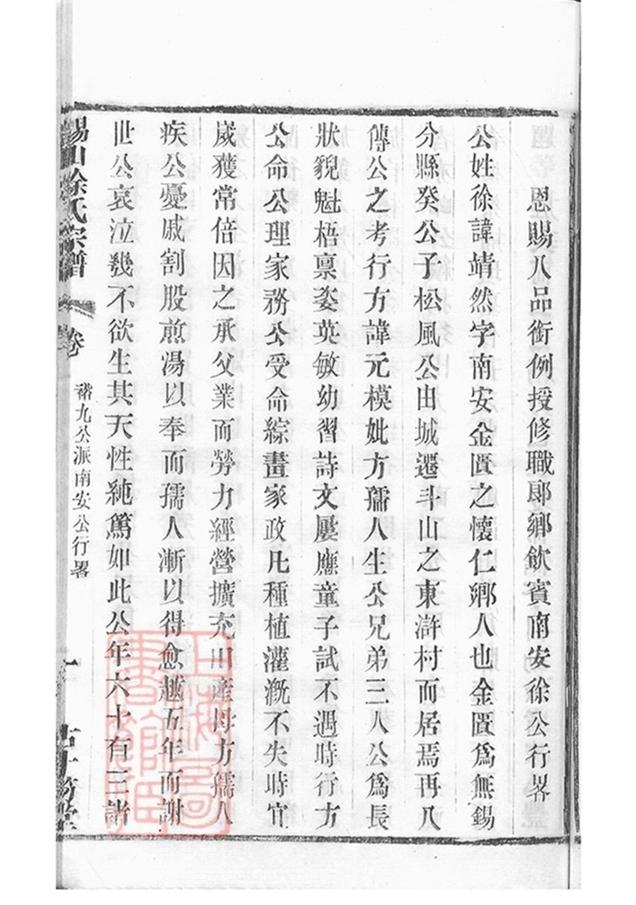 恩賜八品銜例授修職郎鄉飲賓南安徐公行畧
公姓徐諱靖然字南安金匱之懷仁鄉人也金匱爲無錫
分縣癸公子松風公由城遷斗山之東滸村而居焉再八
傳公之考行方諱元模妣方孺人生公兄弟三人公爲長
狀貌魁梧禀姿英敏幼習詩文屢應童子試不遇時行方
公命公理家務公受命綜畫家政凡種植灌漑不失時宜
歲獲常倍因之承父業而勞力經營擴充田產毋方孺人
疾公憂戚割股煎湯以奉而孺人漸以得愈越五年而謝
世公哀泣幾不欲生其天性純篤如此公年六十有三諸
錫山徐氏宗譜
卷
裕九公派南安公行畧
一